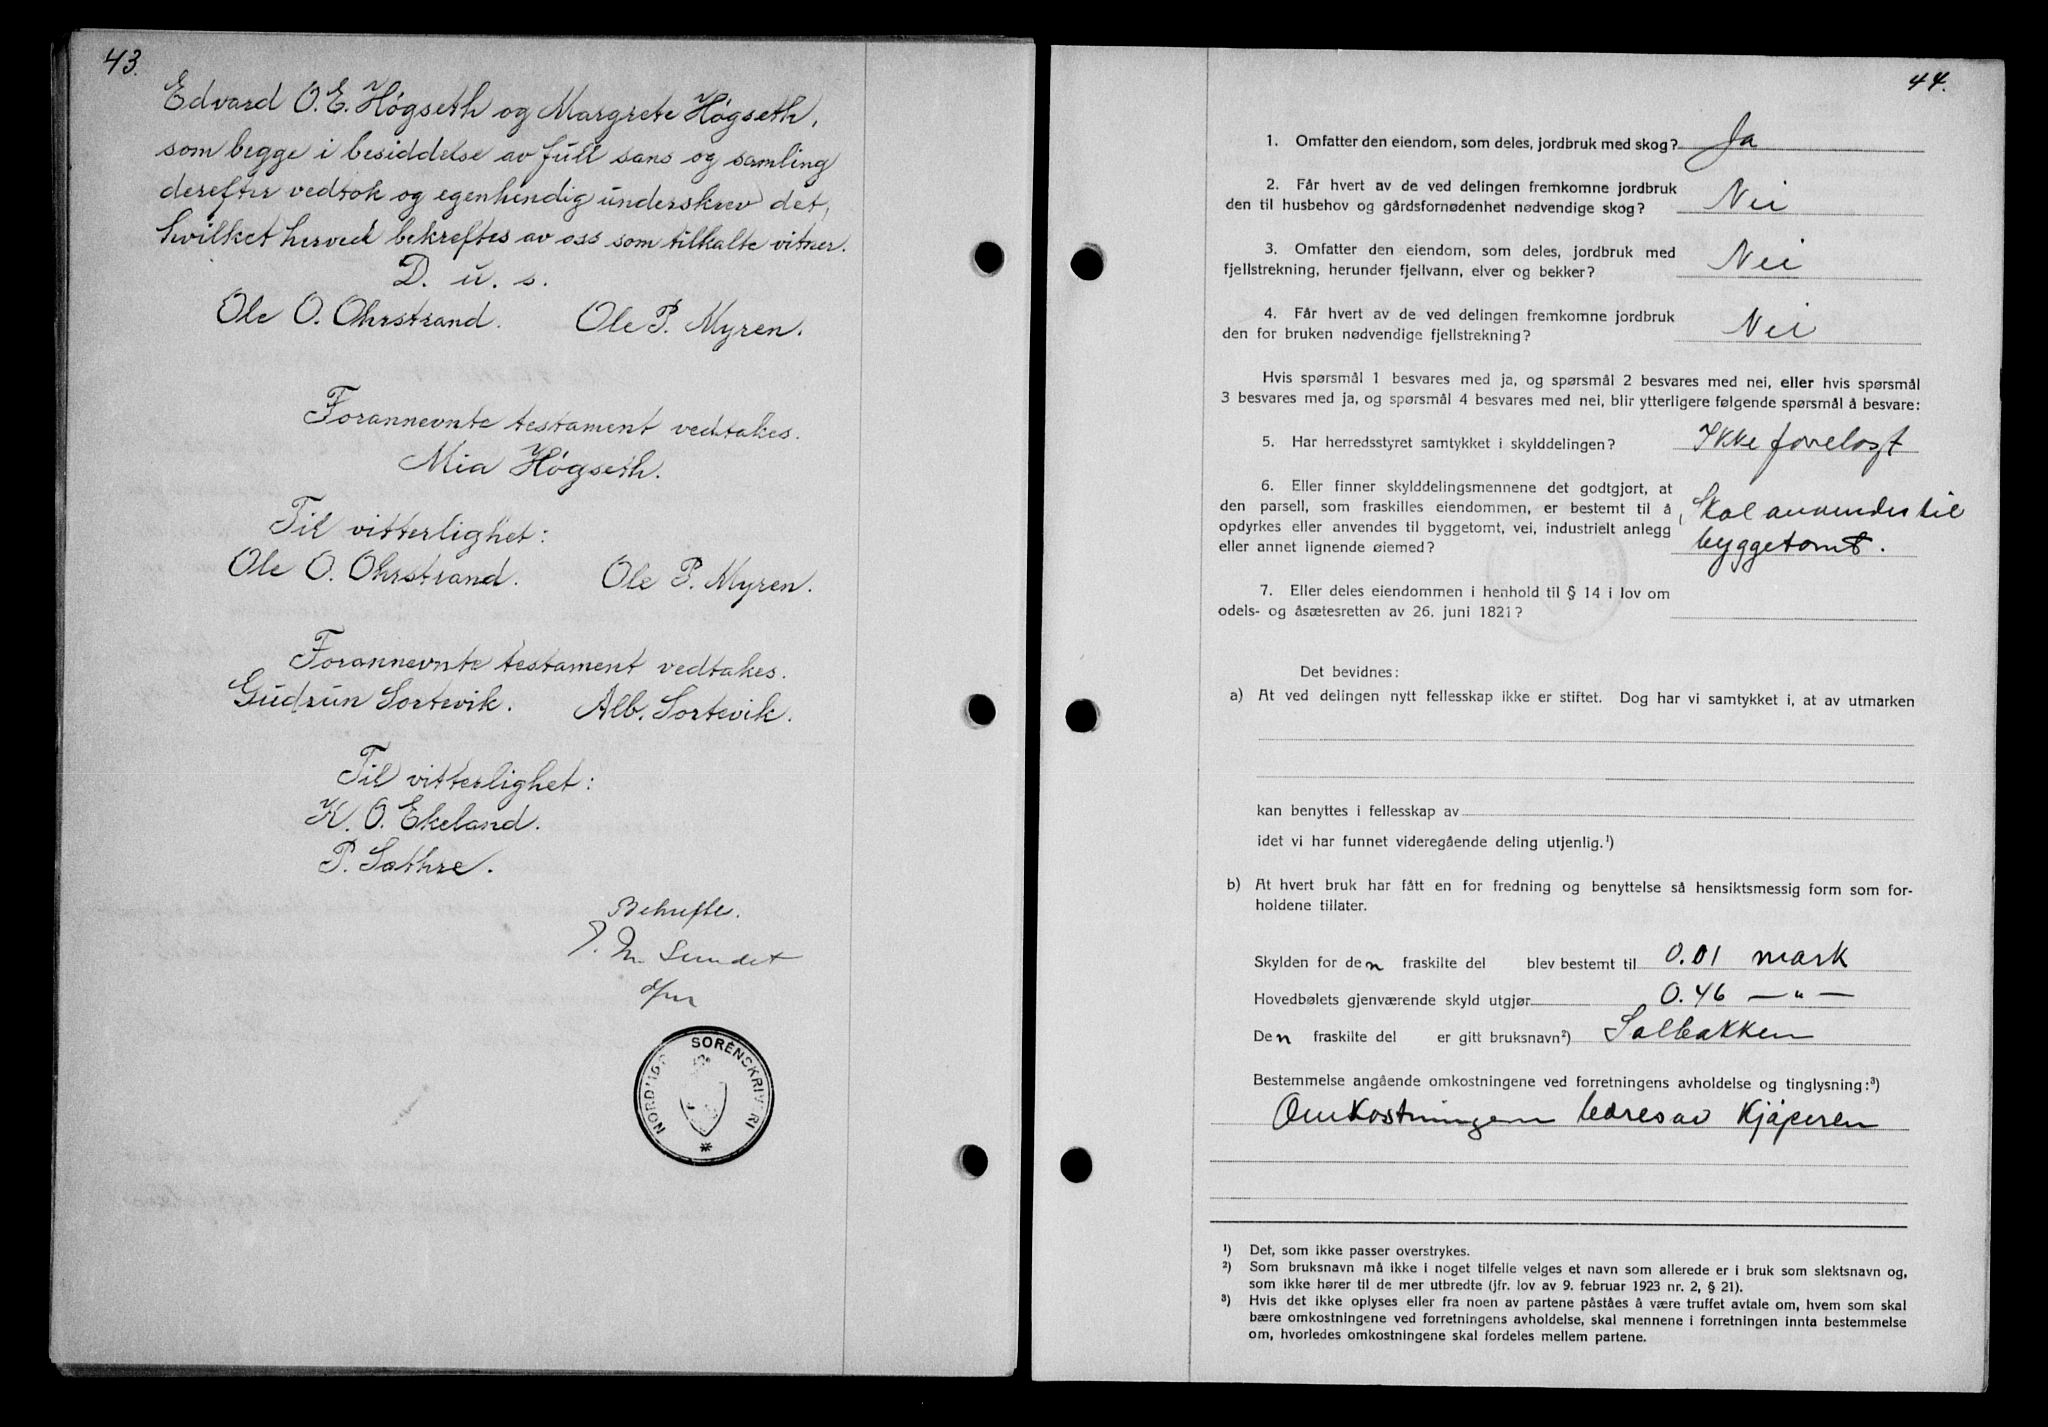 43.
Edvard O. E. Høgseth og Margrete Høgseth,
som begge i besiddelse av full sans og samling
derefter vedtok og egenhendig underskrev det,
hvilket herved bekreftes av oss som tilkalte vitner.
D. u. s.
Ole O. Ohrstrand. Ole P. Myren.
Forannevnte testament vedtakes.
Mia Høgseth.
Til vitterlighet:
Ole O. Ohrstrand. Ole P. Myren.
Forannevnte testament vedtakes.
Gudrun Sortevik. Alb. Sortevik.
Til vitterlighet:
K. O. Ekeland.
P. Sæthre.
Bekreftes.
Sundet
NORDMØR SORENSKRIVERI
44.
1. Omfatter den eiendom, som deles, jordbruk med skog? Ja
2. Får hvert av de ved delingen fremkomne jordbruk
den til husbehov og gårdsfornødenhet nødvendige skog? Nei
3. Omfatter den eiendom, som deles, jordbruk med
fjellstrekning, herunder fjellvann, elver og bekker? Nei
4. Får hvert av de ved delingen fremkomne jordbruk
den for bruken nødvendige fjellstrekning? Nei
Hvis spørsmål 1 besvares med ja, og spørsmål 2 besvares med nei, eller hvis spørsmål
3 besvares med ja, og spørsmål 4 besvares med nei, blir ytterligere følgende spørsmål å besvare:
5. Har herredsstyret samtykket i skylddelingen? Ikke forelagt
6. Eller finner skylddelingsmennene det godtgjort, at
den parsell, som fraskilles eiendommen, er bestemt til å
opdyrkes eller anvendes til byggetomt, vei, industrielt anlegg
eller annet lignende øiemed?
Skal anvendes til
byggetomt.
7. Eller deles eiendommen i henhold til § 14 i lov om
odels- og åsætesretten av 26. juni 1821?
Det bevidnes:
a) At ved delingen nytt fellesskap ikke er stiftet. Dog har vi samtykket i, at av utmarken
kan benyttes i fellesskap av
idet vi har funnet videregående deling utjenlig.¹)
b) At hvert bruk har fått en for fredning og benyttelse så hensiktsmessig form som for-
holdene tillater.
Skylden for den fraskilte del blev bestemt til 0.01 mark
Hovedbølets gjenværende skyld utgjør 0.46 — " —
Den fraskilte del er gitt bruksnavn²) Solbakken
Bestemmelse angående omkostningene ved forretningens avholdelse og tinglysning:³)
Omkostningen bæres av kjøperen
¹) Det, som ikke passer overstrykes.
²) Som bruksnavn må ikke i noget tilfelle velges et navn som allerede er i bruk som slektsnavn og,
som ikke hører til de mer utbredte (jfr. lov av 9. februar 1923 nr. 2, § 21).
³) Hvis det ikke oplyses eller fra noen av partene påståes å være truffet avtale om, hvem som skal
bære omkostningene ved forretningens avholdelse, skal mennene i forretningen innta bestemmelse
om, hvorledes omkostningene skal fordeles mellem partene.